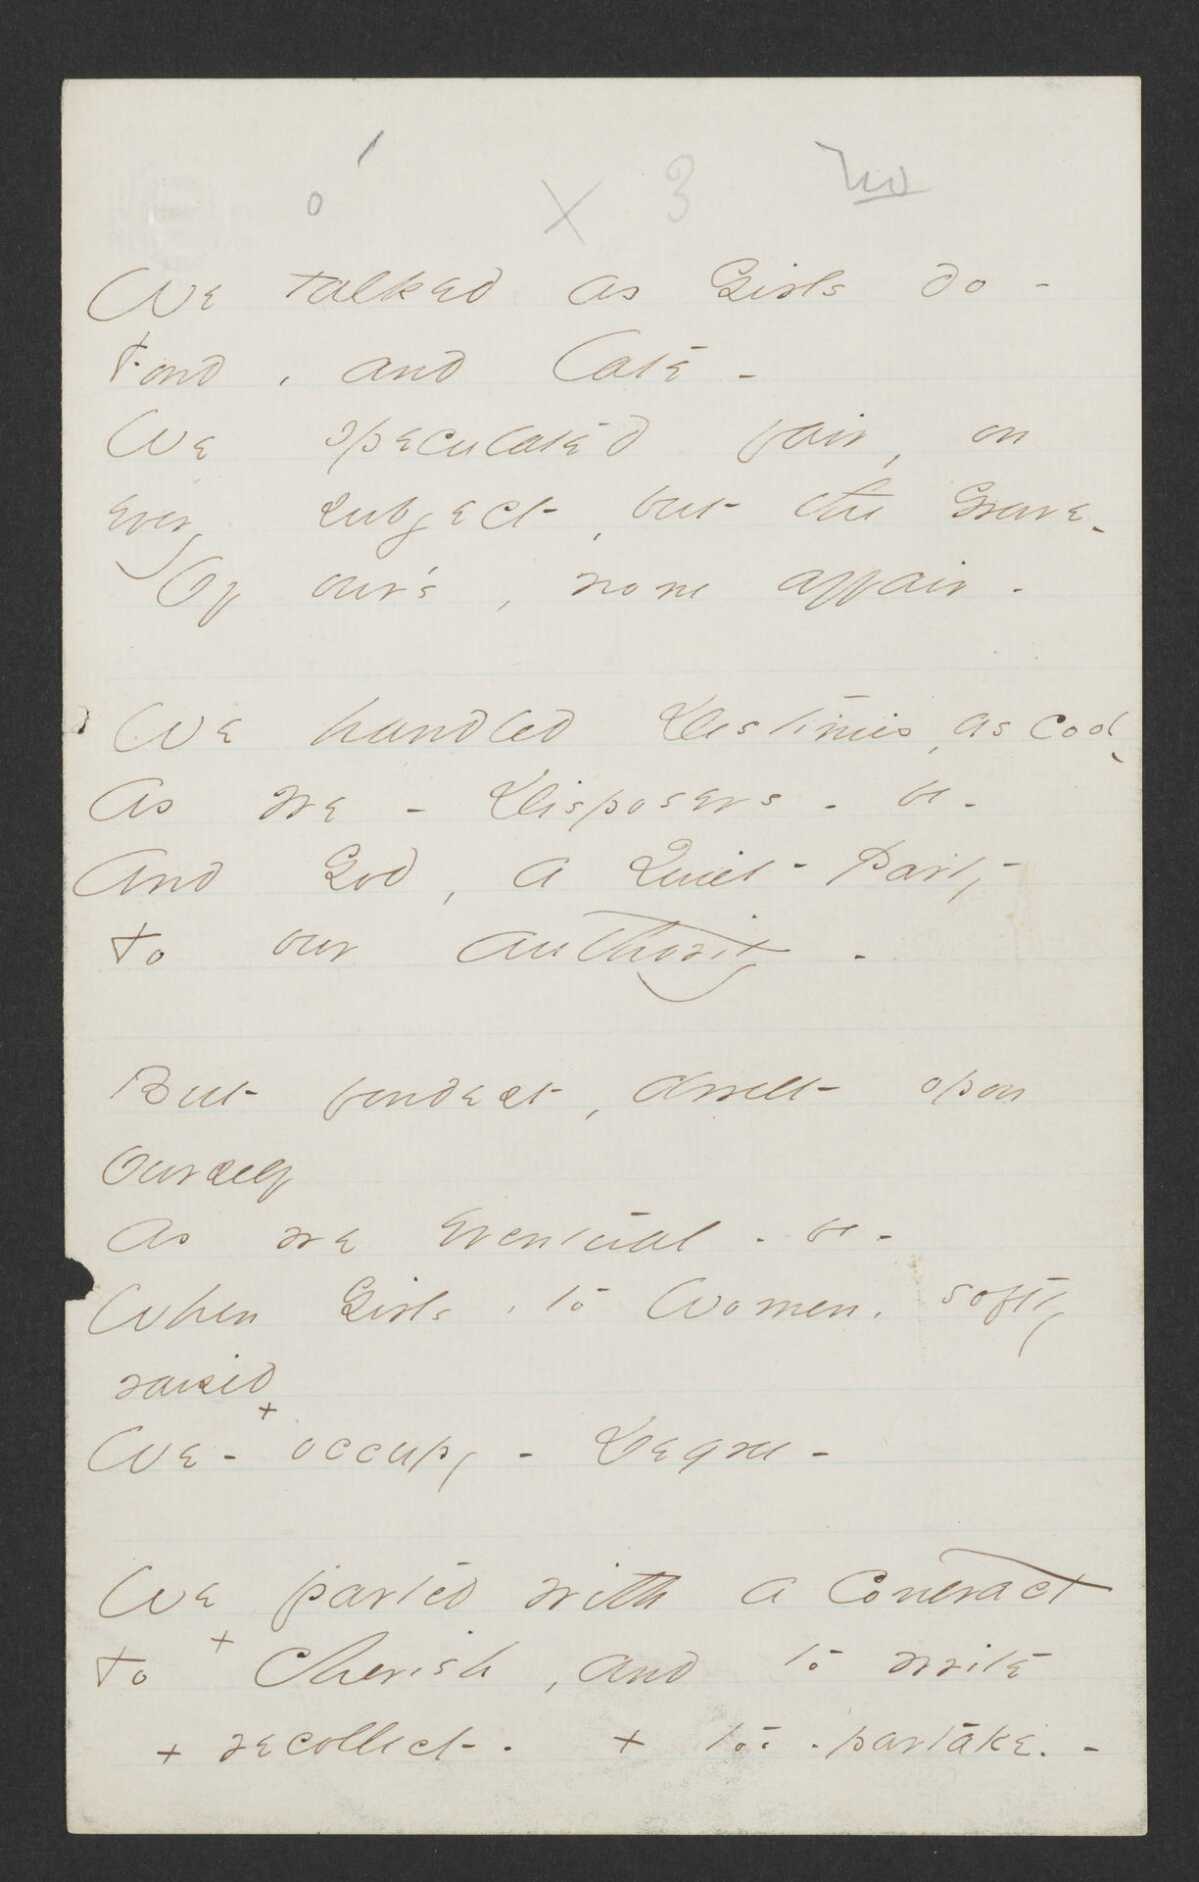 o ' x 3 No
We talked as Girls do -
Fond, and late -
We speculated fair, on
every subject, but the Grave -
Of our's, none affair -
We handled Destinies, as cool -
As we - Disposers - be -
And God, a Quiet Party
To our authority -
But fondest, dwelt opon
Ourself
As we eventual - be -
When Girls, to Women, softly
raised
We - +occupy - Degree -
We parted with a contract
To +cherish, and to write
+ recollect - + to - partake. -